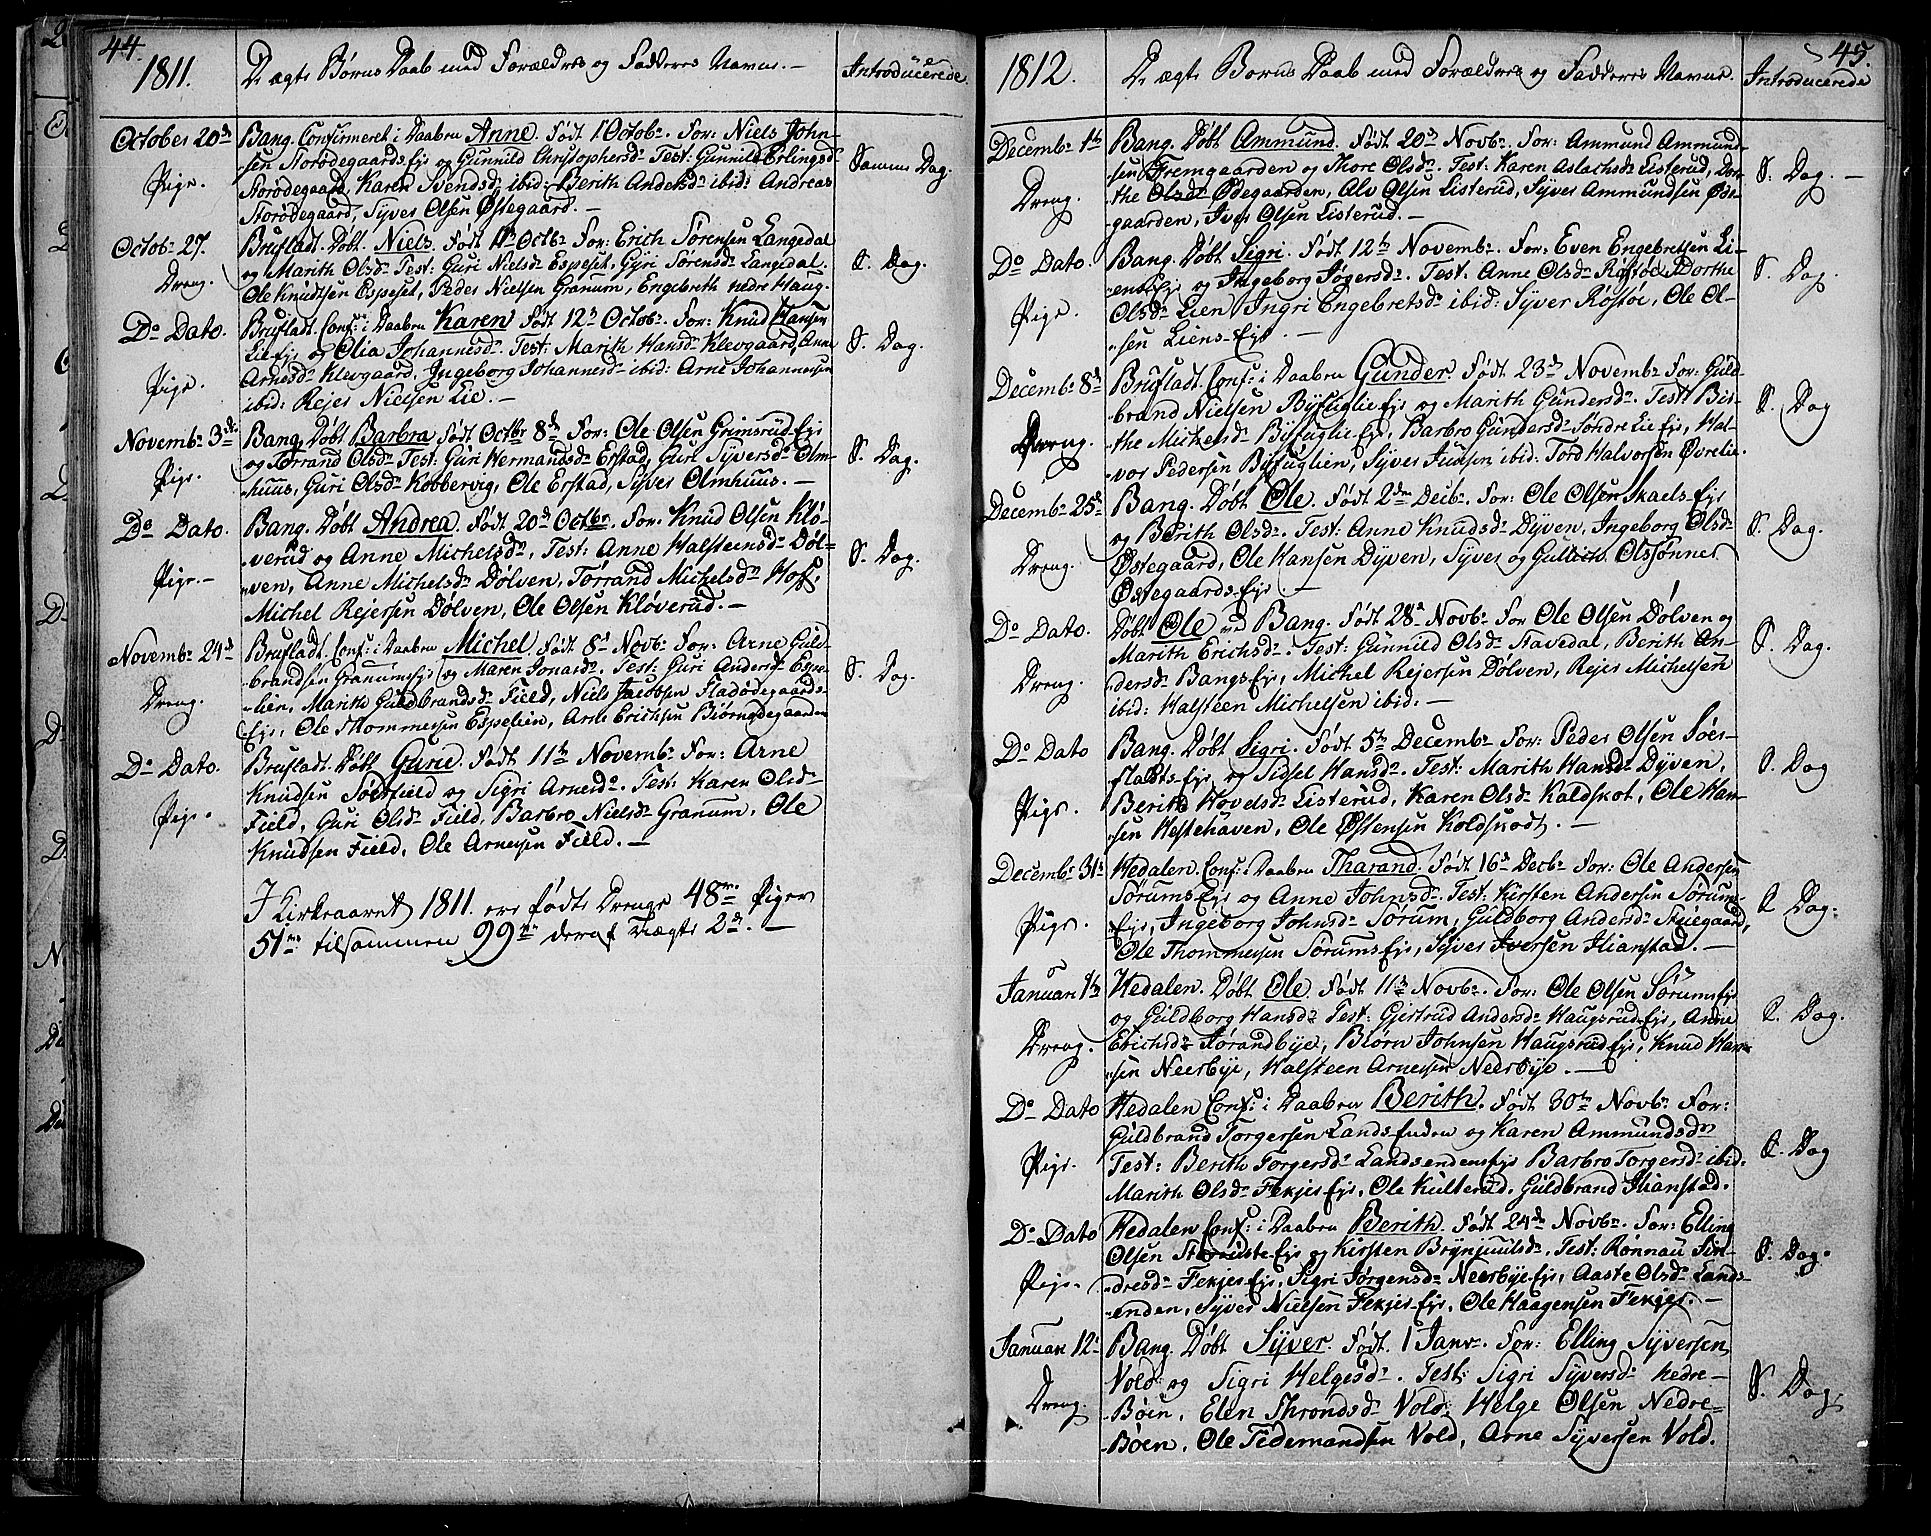 44.
1811. De ægte Børns Daab med Forældres og Fadderes Navne. — Introducerede
October 20de Bang. Confirmeret i Daaben Anne. Født 1 Octobr. For: Niels John-
sen Storødegaards Eje og Gunnild Christophersdr Test: Gunnild Erlingsd
Pige. Storødegaard, Karen Svendsd ibid: Berith Andersdr ibid: Andreas Samme Dag.
Storødegaard, Syver Olsen Østegaard. —
Octobr 27. Brufladt. Døbt Niels. Født 11te Octbr For: Erich Sørensen Langedal
og Marith Olsdr Test: Guri Nielsdr Espeset, Guri Sørensdr Langedal. S. Dag.
Dreng. Ole Knudtsen Espeset, Peder Nielsen Granum, Engebreth nedre Haug.
Do Dato. Brufladt. Conf: i Daaben Karen Født 12te Octobr. For: Knud Hansen
Lie Eje og Olia Johannesdr. Test: Marith Hansdr Klevgaard, Anne S. Dag.
Pige. Arnesdr Klevgaard, Ingeborg Johannesdr ibid: Arne Johannesen
ibid: Rejer Nielsen Lie. —
Novembr 3de Bang. Døbt Barbra Født Octbr 8de For: Ole Olsen Grimsrud Eje
og Torrand Olsdr Test: Guri Hermandsdr Erstad, Guri Syversdr Olm- S. Dag.
Pige. -huus, Guri Olsdr Kobbervig, Ole Erstad, Syver Olmhuus. —
Do Dato. Bang. Døbt Andrea. Født 20de Octbr. For: Knud Olsen Klø-
verud og Anne Michelsdr, Test: Anne Halsteensdr Døl- S. Dag.
Pige. — -ven, Anne Michelsdr Dølven, Torrand Michelsdr Hoff,
Michel Rejersen Dølven, Ole Olsen Kløverud. —
Novembr 24de Brufladt. Conf: i Daaben Michel. Født 8de Novbr For: Arne Guld-
brandsen Granums Eje og Maren Jonasdr. Test: Guri Andersdr Espe- S. Dag.
Dreng. -lien, Marith Guldbrandsdr Field, Niels Jacobsen Fladødegaards-
Eje, Ole Thommesen Espelien, Arne Erichsen Biørnødegaarden
Do Dato. Brufladt. Døbt Gurie. Født 11te Novembr For: Arne
Knudsen Sørfield og Sigri Arnesdr. Test: Karen Olsdr
Pige. Field, Guri Olsdr Field, Barbro Nielsdr Granum, Ole
Knudsen Field, Ole Arnesen Field. —
I Kirkeaaret 1811. ere fødte Drenge 48te. Piger
51te tilsammen 99te deraf Uægte 2de. —
45.
1812. De ægte Børns Daab med Forældres og Fadderes Navne. Introducerede
Decembr 1te Bang. Døbt Ammund. Født 20de Novbr. For: Ammund Ammund-
sen Fremgaarden og Thore Olsdr. Test: Karen Aslachsdr Listerud, Dor- S. Dag. —
Dreng. the Olsdr Ødegaarden, Ole Olsen Listerud, Syver Ammundsen Øde-
gaarden, Iver Olsen Listerud. —
Do Dato. Bang. Døbt Sigri. Født 12te Novembr. For: Even Engebretsen Li-
ens Eje og Ingeborg Jøgersdr. Test. Anne Olsdr Røstøe, Dorthe S. Dag.
Pige. Olsdr Lien, Ingri Engebretsdr ibid: Syver Røstøe, Ole Ol-
-sen Liens-Eje. —
Decembr 8de Brufladt. Conf: i Daaben Gunder. Født 23de Novembr For: Guld-
-brand Nielsen Byfuglie Eje og Marith Gundersdr. Test: Bir- S. Dag
Dreng. the Michelsdr Byfuglie Eje, Barbro Gundersdr Søndre Lie Eje, Hal-
vor Pedersen Byfuglien, Syver Juusen ibid: Tord Halvorsen Øvrelie.
Decembr 25de Bang. Døbt Ole. Født 2den Decbr. For: Ole Olsen Skaels-Eje
og Berith Olsdr. Test: Anne Knudsdr Dyven, Ingeborg Olsdr S. Dag.
Dreng. Østegaard, Ole Hansen Dyven, Syver og Gullich Olssønner
Østegaards Eje. —
Do Dato. Døbt Ole ved Bang. Født 28de Novbr. For: Ole Olsen Dølven og
Marith Erichsdr. Test: Gunnild Olsdr Stavedal, Berith An- S. Dag.
Dreng. -dersdr Bangs Eje, Michel Rejersen Dølven, Rejer Michelsen
ibid: Halsteen Michelsen ibid: —
Do Dato Bang. Døbt Sigri. Født 5te Decembr For: Peder Olsen Søer-
fladts-Eje og Sidsel Hansdr. Test: Marith Hansdr Dyven, S. Dag
Pige. Berith Hovelsdr Listerud, Karen Olsdr Koldskot, Ole Han-
-sen Hestehaven, Ole Østensen Koldskodt. —
Decembr 31te Hedalen. Conf: i Daaben Tharand. Født 16de Decbr For: Ole Andersen
Sørums Eje og Anne Johnsdr. Test: Kirsten Andersen Sørums- S. Dag.
Pige. Eje, Ingeborg Johnsdr Sørum, Guldborg Andersdr Stuegaard,
Ole Thommesen Sørums Eje, Syver Iversen Jlianstad. —
Januari 1te Hedalen. Døbt Ole. Født 11te Novbr. For: Ole Olsen Sørums Eje
og Guldborg Hansdr Test: Gjertrud Andersdr Haugsrud Eje, Anne S. Dag.
Dreng. Erichsdr Jørandbye, Biørn Johnsen Haugsrud Eje, Knud Han-
-sen Neerbye, Halsteen Arnesen Neerbye. —
Do Dato Hedalen Conf: i Daaben Berith. Født 30te Novbr For:
Guldbrand Torgersen Lands-Enden og Karen Ammundsdr
Pige. Test: Berith Torgersdr Landsendens Eje Barbro Torgersdr ibid: S. Dag
Marith Olsdr Fekjes Eje, Ole Kulterud, Guldbrand Jlianstad.
Do Dato Hedalen Conf: i Daaben Berith. Født 24de Novbr. For: Elling
Olsen Eje og Kirsten Brynjuulsdr. Test: Rønnau Sin- S. Dag.
Pige. -dresdr Fekjes Eje, Sigri Jørgensdr Neerbye Eje, Aaste Olsdr Lands-
-enden, Syver Nielsen Fekjes-Eje, Ole Haagensen Fekjes. —
Januari 12te Bang. Døbt Syver. Født 1 Janv. For: Elling Syversen
Vold og Sigri Helgesdr. Test: Sigri Syversdr Nedre- S. Dag.
Dreng. -Bøen, Elen Throndsdr Vold. Helge Olsen Nedre-
-Bøen, Ole Tidemandsen Vold, Arne Syversen Vold.